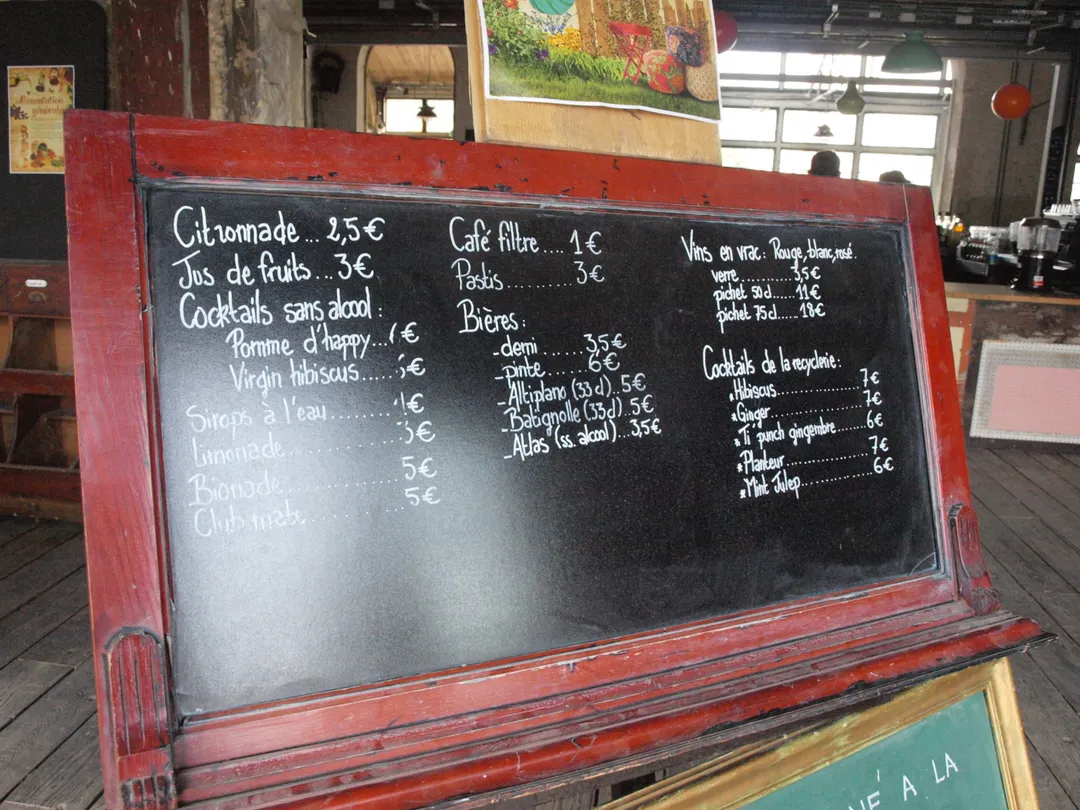 Alimentation
générale
Citronnade... 2,5€
Jus de fruits...3€
Cocktails sans alcool :
Pomme d'happy... €
Virgin hibiscus..... €
Sirops à l'eau......... 1€
Limonade.............. 3€
Bionade................ 5€
Club mate............. 5€
Café filtre.... 1€
Pastis.......... 3€
Bières :
-demi ...... 3,5€
-pinte ....... 6€
-Altiplano (33 cl)..5€
-Batignolle (33cl)..5€
-Atlas (ss. alcool)...3,5€
Vins en vrac : Rouge, blanc, rosé.
verre............3,5€
pichet 50 cl......11€
pichet 75cl.....18€
Cocktails de la recyclerie :
*Hibiscus................7€
*Ginger..................7€
*Ti' punch gingembre......6€
*Planteur................7€
*Mint Julep..............6€
É A LA